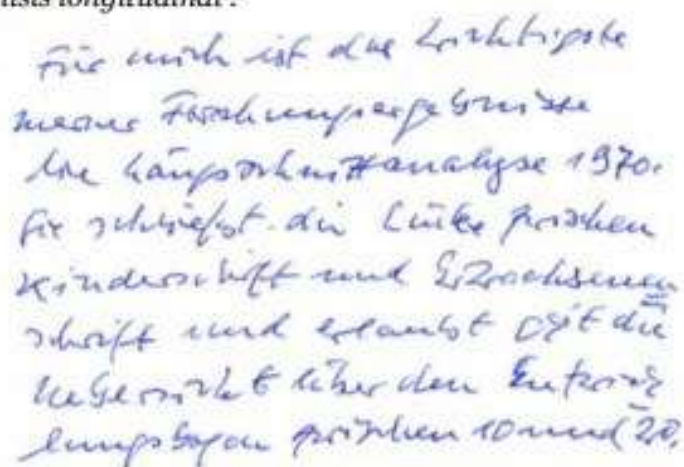 longitudinal".
Für mich ist das wichtigste
meiner Forschungsergebnisse
die Längsschnittanalyse 1970.
Sie schließt die Lücke zwischen
Kinderschrift und Erwachsenen
schrift und erlaubt die
Uebersicht über den Entwick
lungsbogen zwischen 10 und 20.